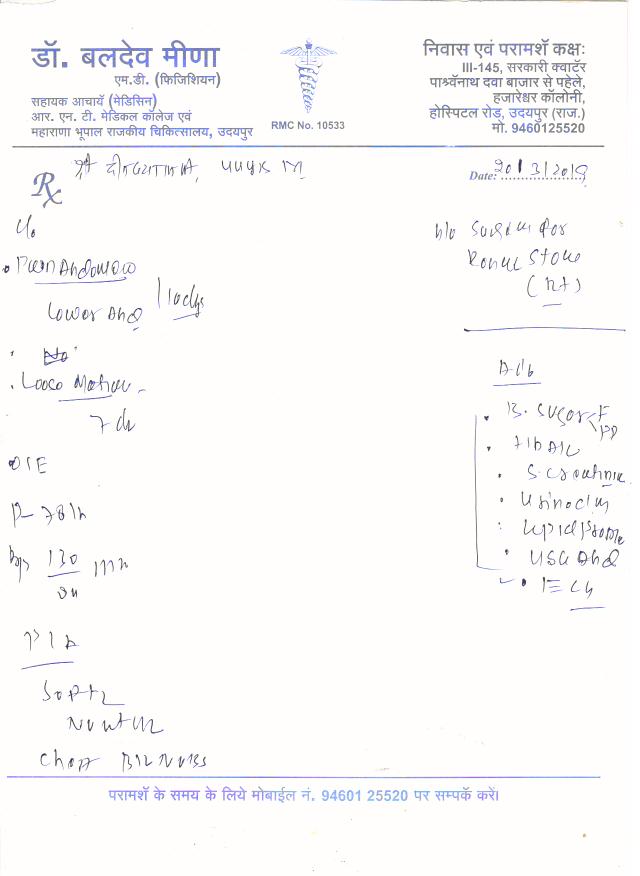 डॉ. बलदेव मीणा
एम.डी. (फिजिशियन)
सहायक आचार्य (मेडिसिन)
आर. एन. टी. मेडिकल कॉलेज एवं
महाराणा भूपाल राजकीय चिकित्सालय, उदयपुर
RMC No. 10533
निवास एवं परामर्श कक्षः
III-145, सरकारी क्वार्टर
पार्श्वनाथ दवा बाजार से पहले,
हजारेश्वर कॉलोनी,
होस्पिटल रोड़, उदयपुर (राज.)
मो. 9460125520
Rx
श्री
Date: 20/3/2019
C/o
Pain Abdomen
Lower Abd
10 days
Loose Motion
7 d
O/E
P- 78/m
Bp 130
P/A
Soft
Chest B/L
h/o Surgery for
Renal Stone
(Rt)
Adv
B. Sugar F
PP
HbA1c
S. Creatinine
Urine
Lipid Profile
USG Abd
ECG
परामर्श के समय के लिये मोबाईल नं. 94601 25520 पर सम्पर्क करें।